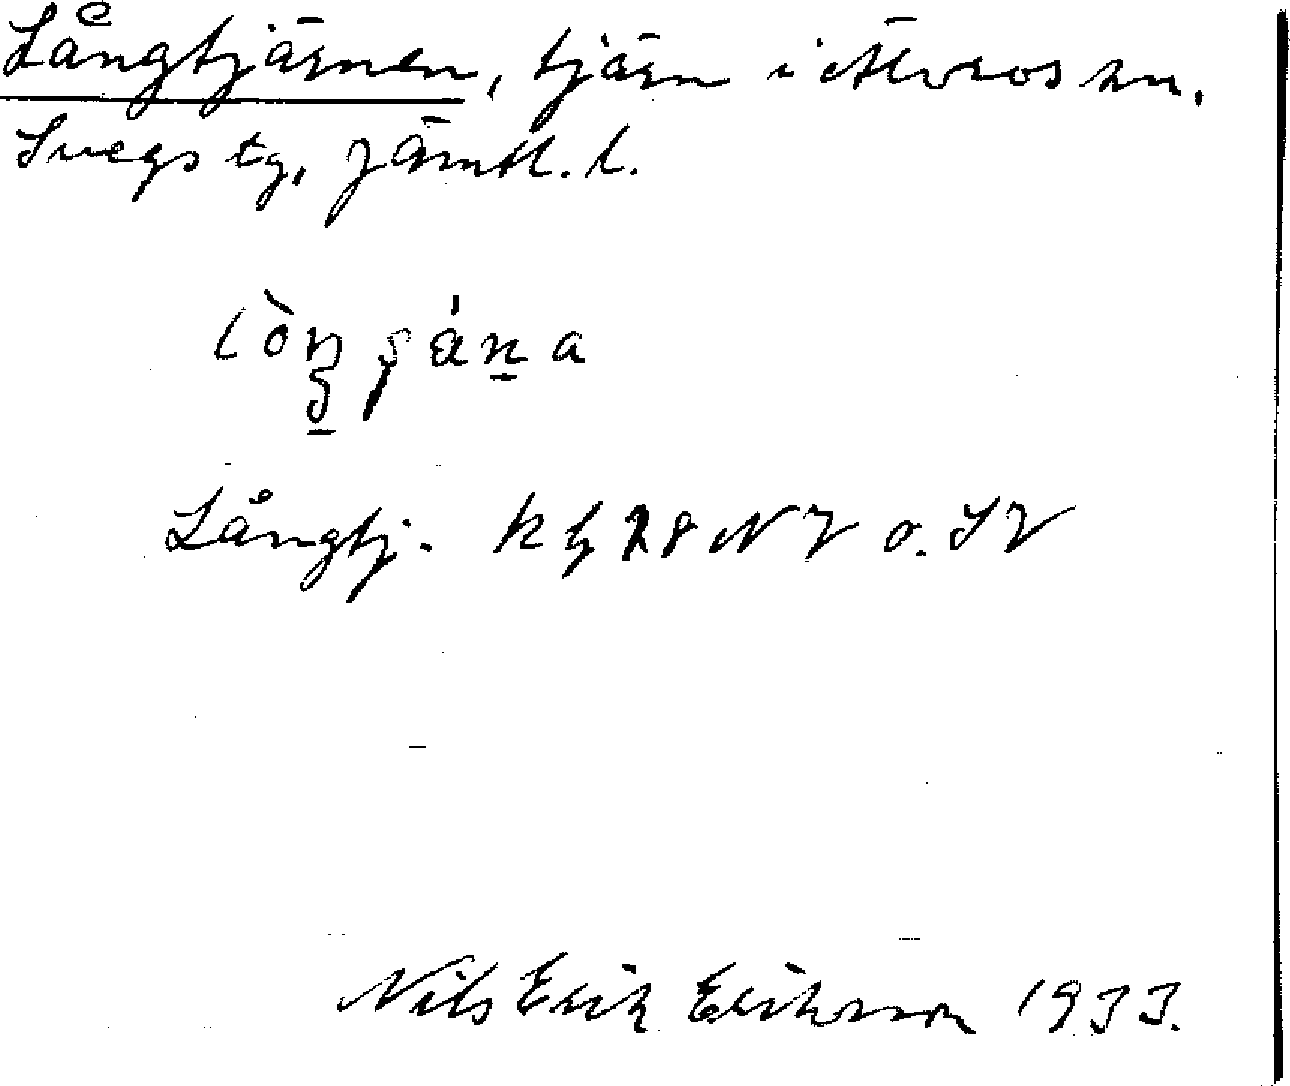 Långtjärnen, tjärn i Älvros sn,
Svegs tg, Jämtl. l.
Långtj. kbl 28 NV o. SV
Nils Erik Eriksson 1933.